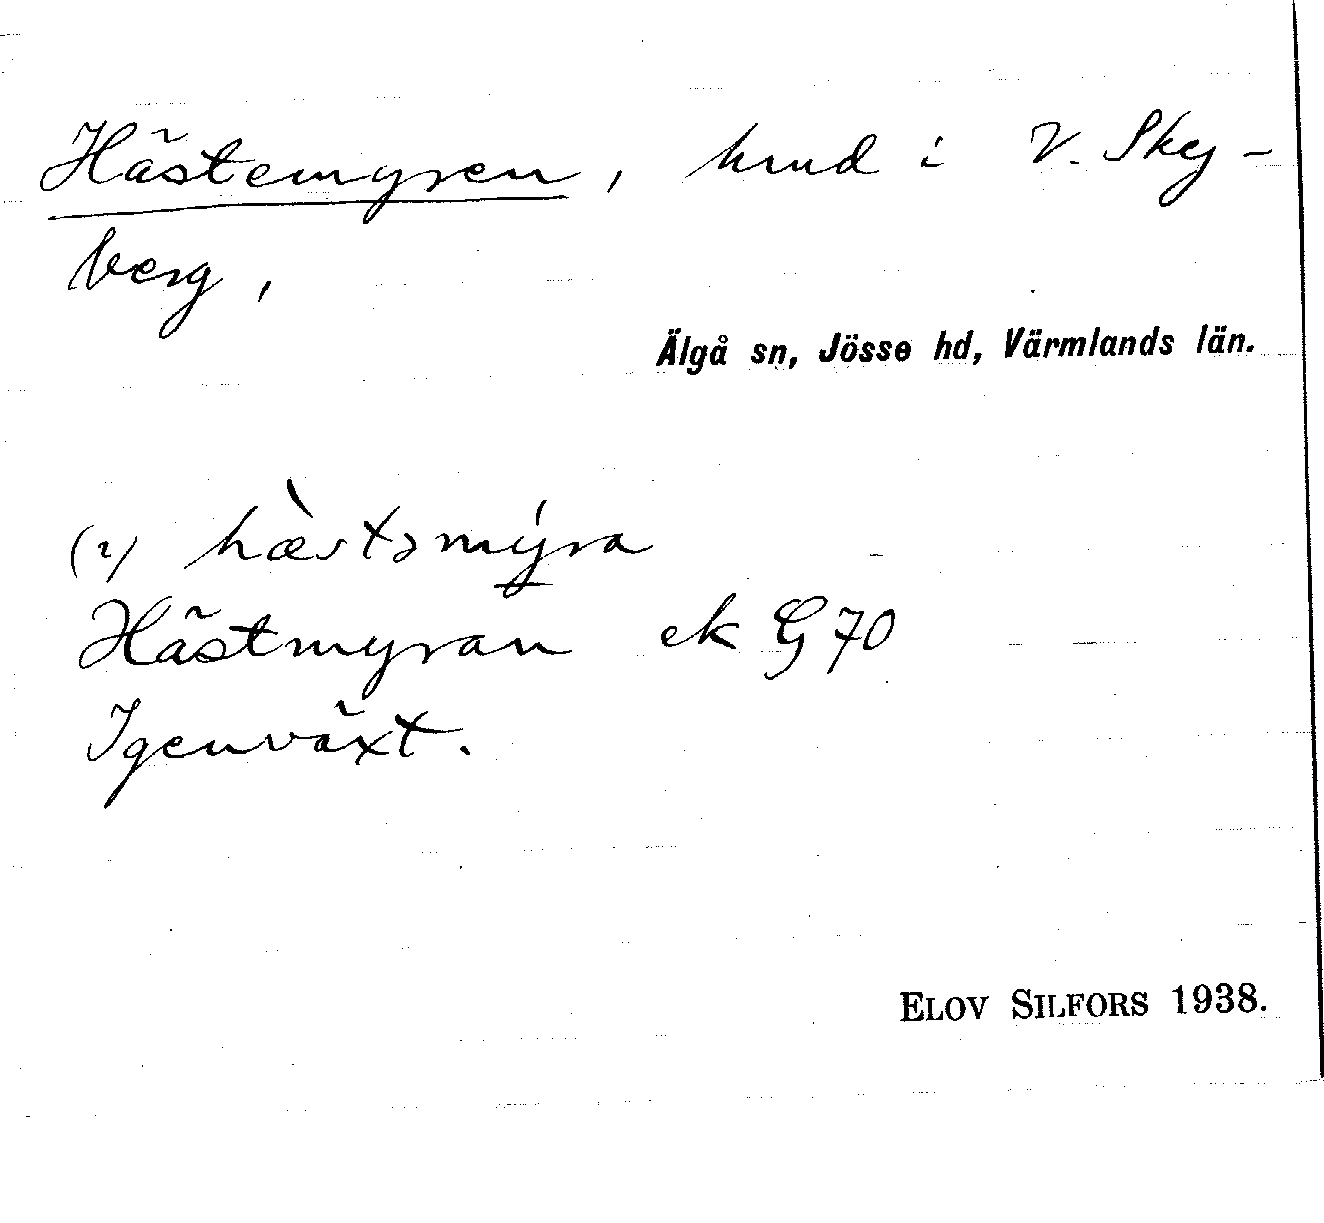 Hästemyren, hmd i V. Sky-
berg,
Älgå sn, Jösse hd, Värmlands län.
(2) hæ̀stəmýra
Hästmyran ek G70
Igenväxt.
ELOV SILFORS 1938.